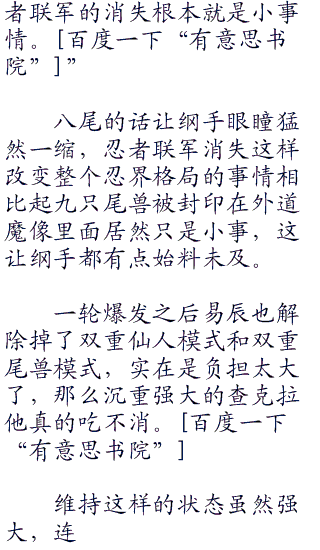 者联军的消失根本就是小事
情。[百度一下“有意思书
院”]”
八尾的话让纲手眼瞳猛
然一缩，忍者联军消失这样
改变整个忍界格局的事情相
比起九只尾兽被封印在外道
魔像里面居然只是小事，这
让纲手都有点始料未及。
一轮爆发之后易辰也解
除掉了双重仙人模式和双重
尾兽模式，实在是负担太大
了，那么沉重强大的查克拉
他真的吃不消。[百度一下
“有意思书院”]
维持这样的状态虽然强
大，连